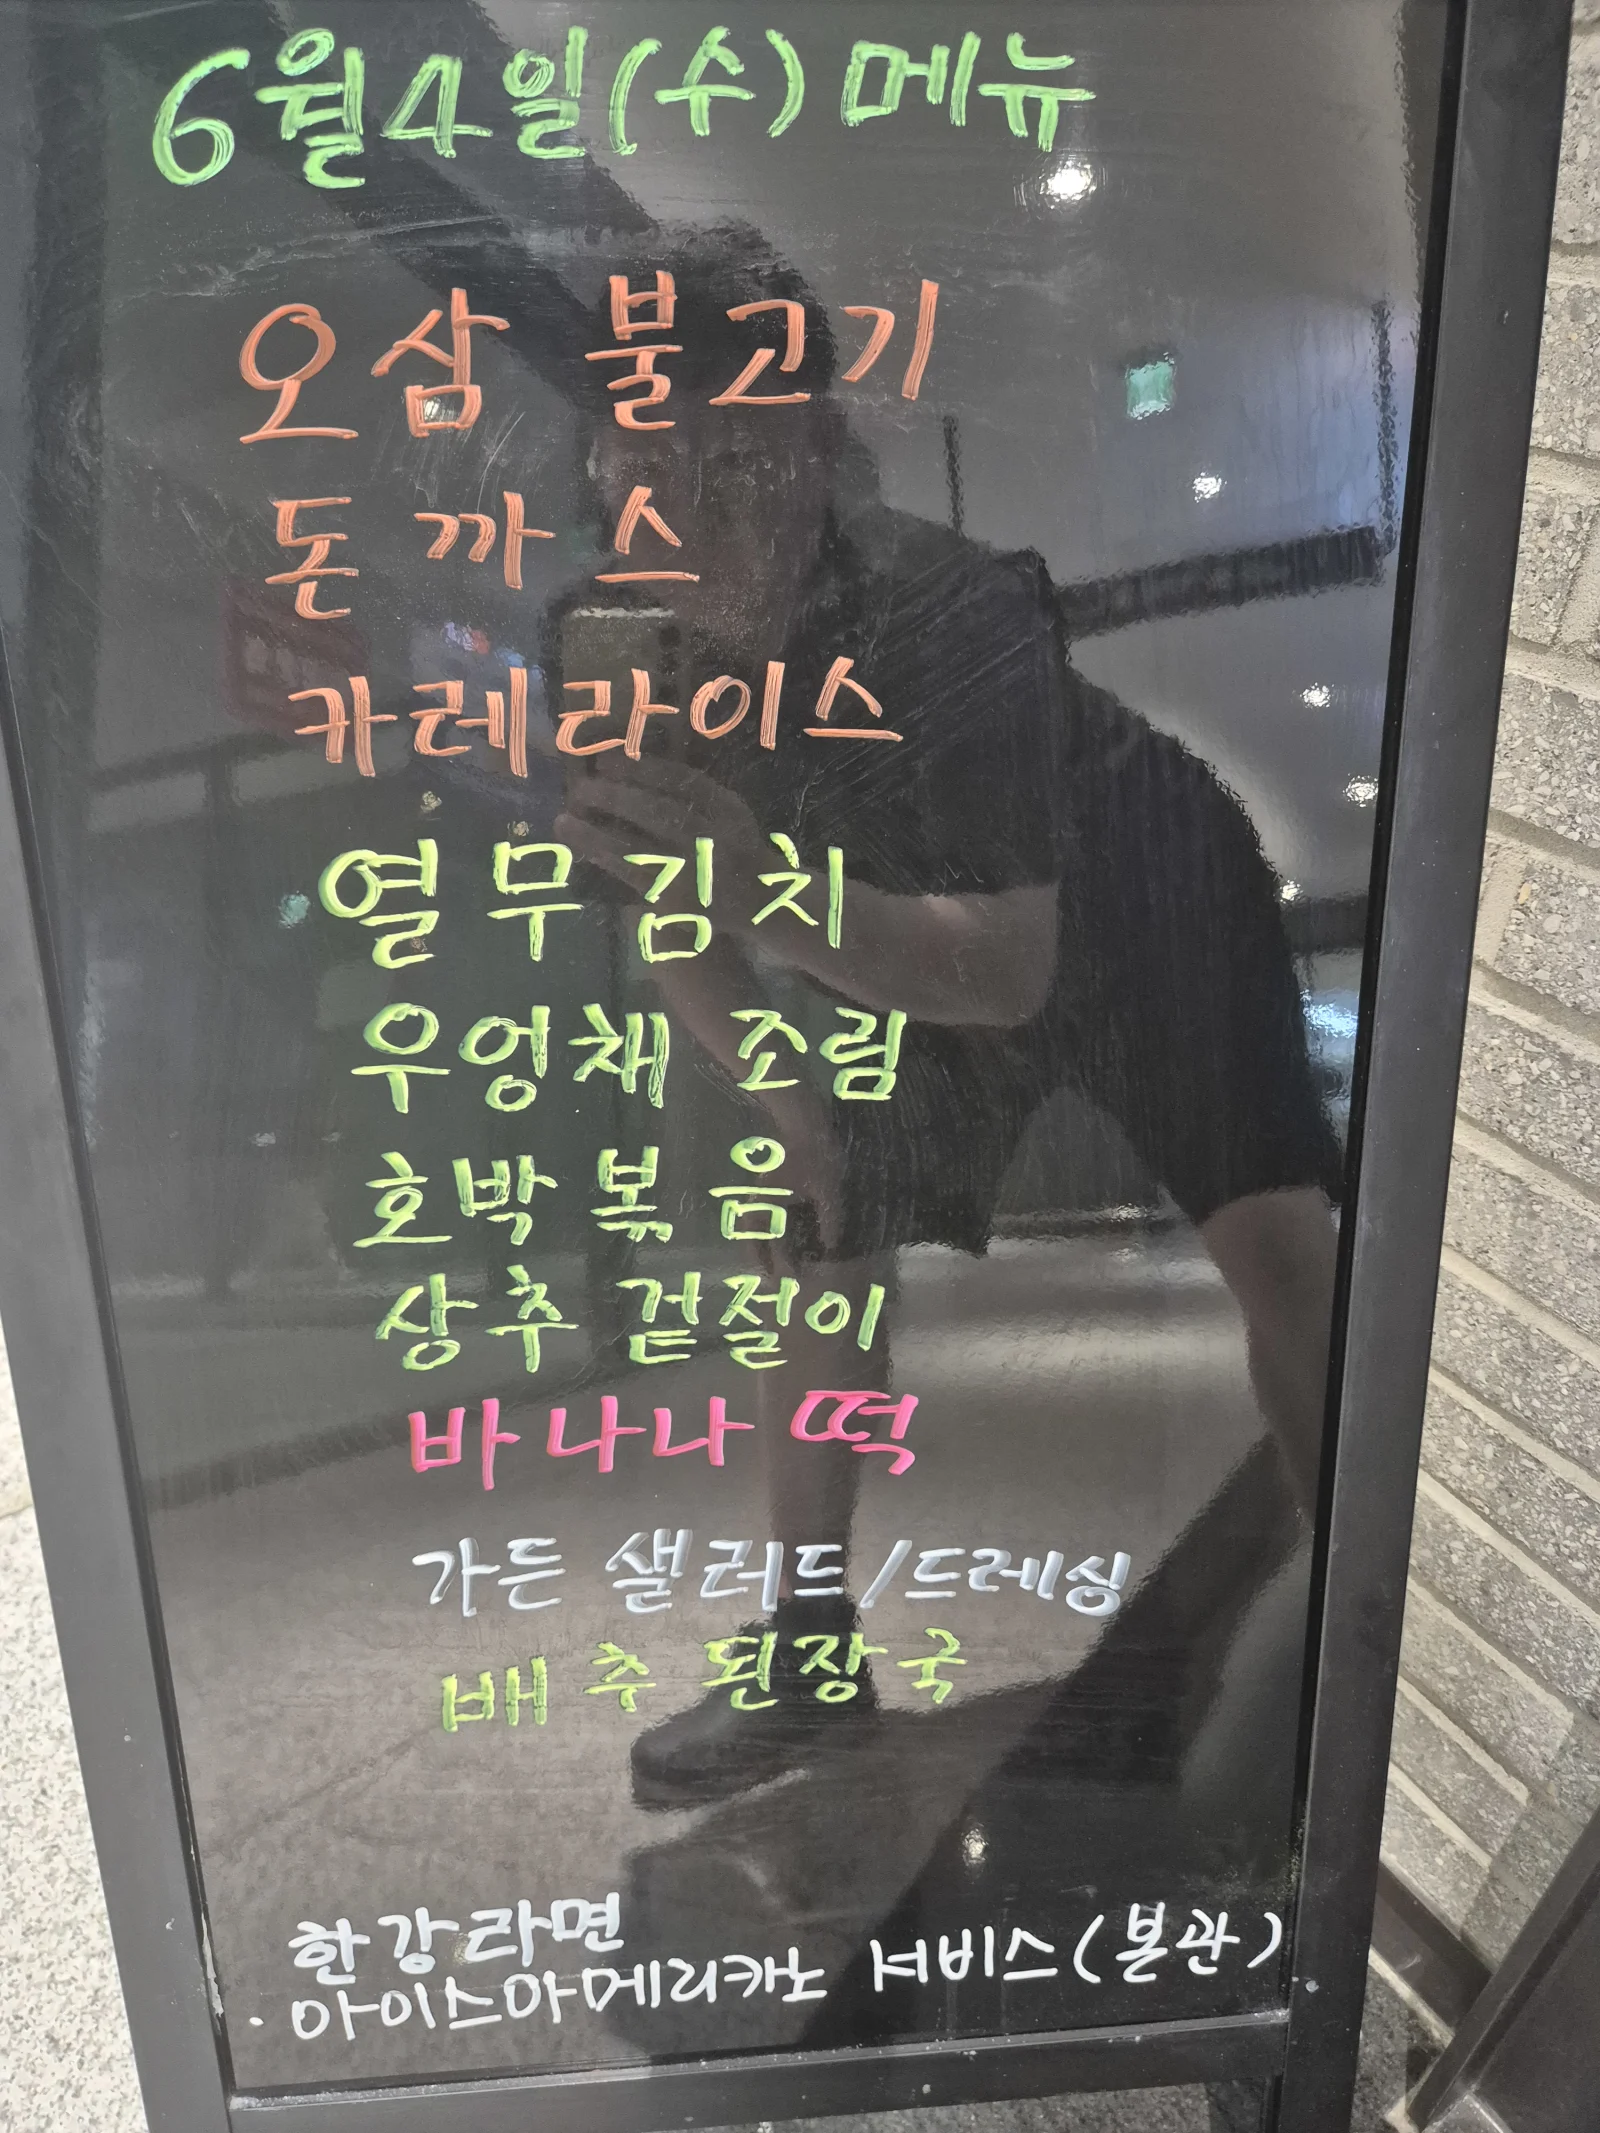 6월4일(수)메뉴
오삼 불고기
돈까스
카레라이스
열무김치
우엉채 조림
호박볶음
상추 겉절이
바나나 떡
가든 샐러드/드레싱
배추 된장국
한강라면
· 아이스아메리카노 서비스(본관)